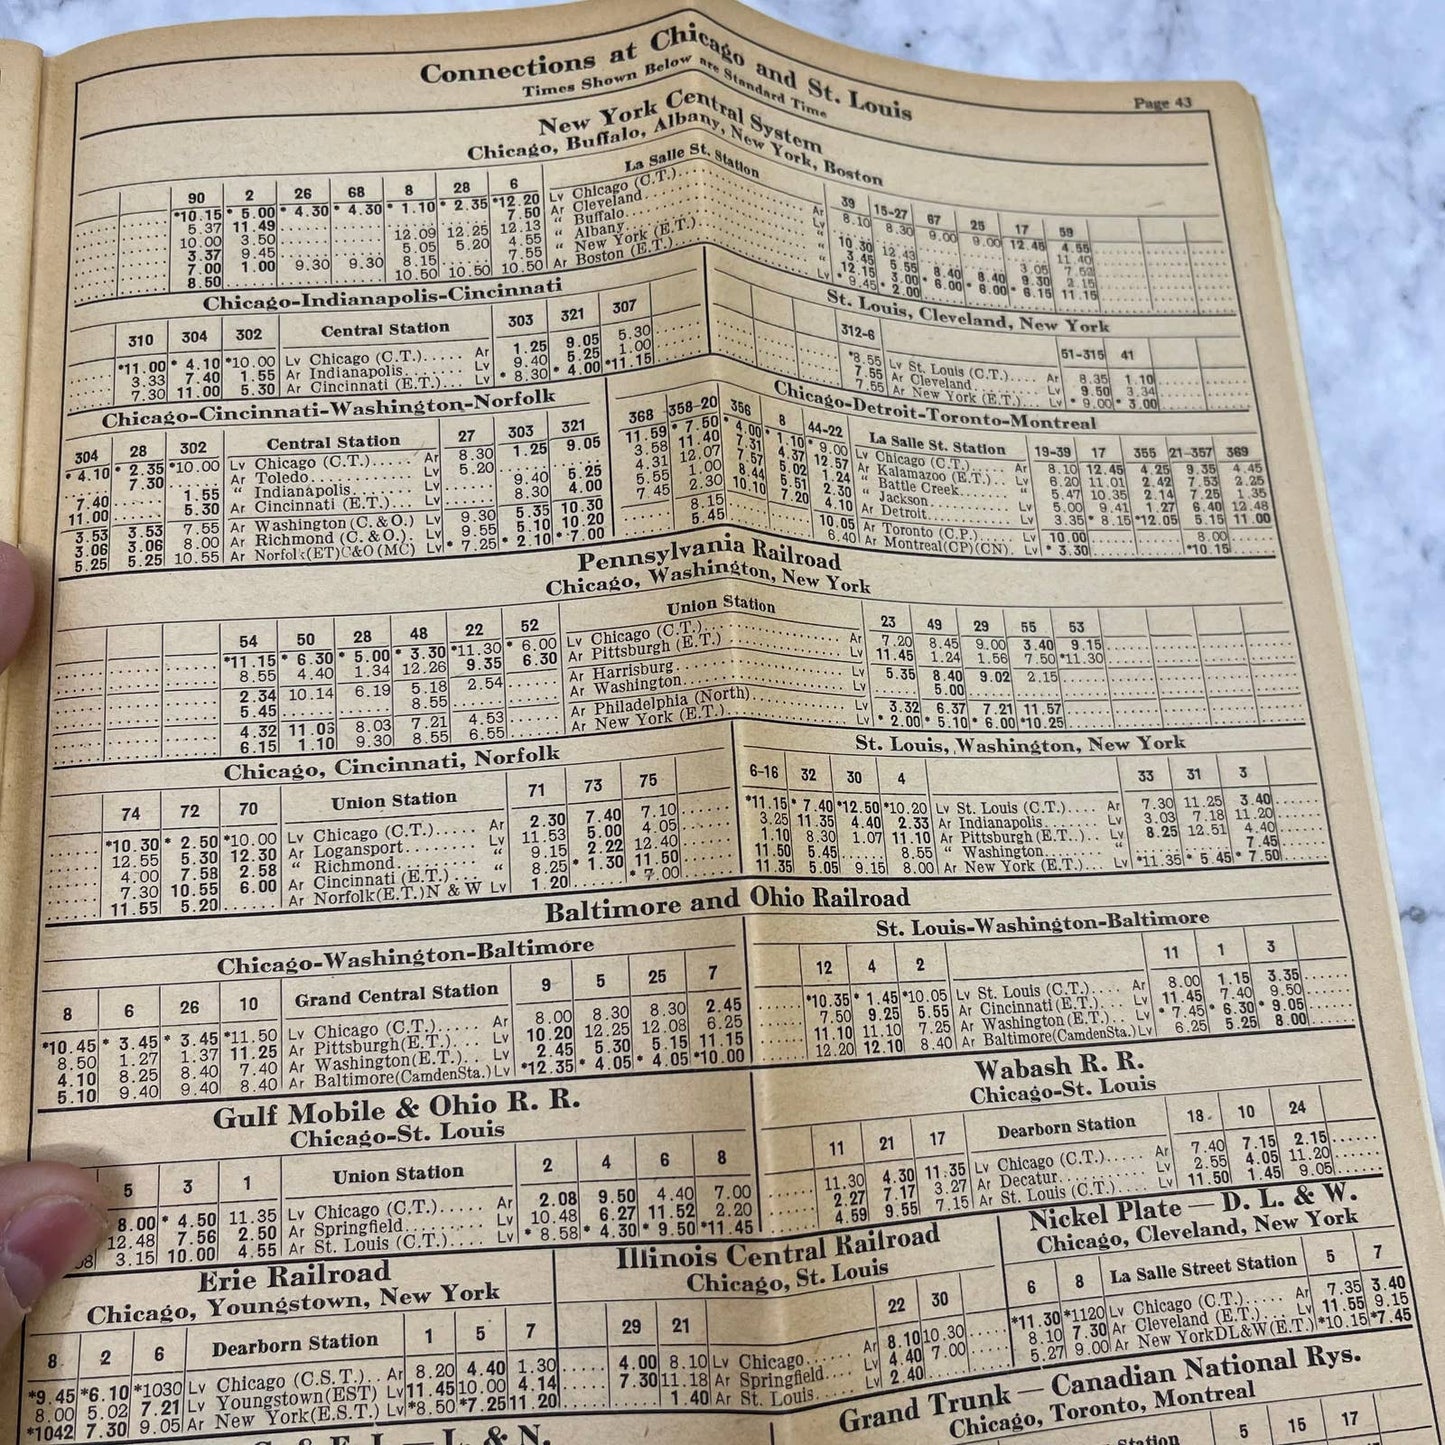 Connections at Chicago and St. Louis
Times Shown Below are Standard Time
Page 43
New York Central System
Chicago, Buffalo, Albany, New York, Boston
La Salle St. Station
90 2 26 68 8 28 6
39 15-27 67 25 17 59
*10.15 * 5.00 * 4.30 * 4.30 * 1.10 * 2.35 *12.20 Lv Chicago (C.T.) Ar 8.10 8.30 9.00 9.00 12.45 4.55
Ar Cleveland
" Buffalo
" Albany
" New York (E.T.)
Ar Boston (E.T.)
Chicago-Indianapolis-Cincinnati
310 304 302 Central Station 303 321 307
*11.00 * 4.10 *10.00 Lv Chicago (C.T.) Ar 1.25 9.05 5.30
3.33 7.40 1.55 Ar Indianapolis Lv 9.40 5.25 1.00
7.30 11.00 5.30 Ar Cincinnati (E.T.) Lv * 8.30 * 4.00 *11.15
St. Louis, Cleveland, New York
312-6 51-315 41
*8.55 Lv St. Louis (C.T.) Ar 8.35 1.10
7.55 Ar Cleveland Lv 9.50 3.34
7.55 Ar New York (E.T.) Lv * 9.00 * 3.00
Chicago-Cincinnati-Washington-Norfolk
304 28 302 Central Station 27 303 321
* 4.10 * 2.35 *10.00 Lv Chicago (C.T.) Ar 8.30 1.25 9.05
7.30 Ar Toledo Lv 5.20
7.40 1.55 " Indianapolis Lv 9.40 5.25
11.00 5.30 Ar Cincinnati (E.T.) Lv 8.30 4.00
3.53 3.53 7.55 Ar Washington (C. & O.) Lv 9.30 5.35 10.30
3.06 3.06 8.00 Ar Richmond (C. & O.) Lv 9.55 5.10 10.20
5.25 5.25 10.55 Ar Norfolk(ET)C&O(MC) Lv * 7.25 * 2.10 * 7.00
Chicago-Detroit-Toronto-Montreal
368 358-20 356 8 44-22 La Salle St. Station 19-39 17 355 21-357 369
11.59 * 7.50 * 4.00 * 1.10 * 9.00 Lv Chicago (C.T.) Ar 8.10 12.45 4.25 9.35 4.45
3.58 11.40 7.31 4.37 12.57 Ar Kalamazoo (E.T.) Lv 6.20 11.01 2.42 7.53 2.25
4.31 12.07 7.57 5.02 1.24 " Battle Creek " 5.47 10.35 2.14 7.25 1.35
5.55 1.00 8.44 5.51 2.30 " Jackson " 5.00 9.41 1.27 6.40 12.48
7.45 2.30 10.10 7.20 4.10 Ar Detroit Lv 3.35 * 8.15 *12.05 5.15 11.00
8.15 10.05 Ar Toronto (C.P.) Lv 10.00 8.00
5.45 6.40 Ar Montreal(CP)(CN) Lv * 3.30 *10.15
Pennsylvania Railroad
Chicago, Washington, New York
54 50 28 48 22 52 Union Station 23 49 29 55 53
*11.15 * 6.30 * 5.00 * 3.30 *11.30 * 6.00 Lv Chicago (C.T.) Ar 7.20 8.45 9.00 3.40 9.15
8.55 4.40 1.34 12.26 9.35 6.30 Ar Pittsburgh (E.T.) Lv 11.45 1.24 1.56 7.50 *11.30
2.34 10.14 6.19 5.18 2.54 Ar Harrisburg Lv 5.35 8.40 9.02 2.15
5.45 8.55 Ar Washington Lv 5.00
4.32 11.03 8.03 7.21 4.53 Ar Philadelphia (North) Lv 3.32 6.37 7.21 11.57
6.15 1.10 9.30 8.55 6.55 Ar New York (E.T.) Lv * 2.00 * 5.10 * 6.00 *10.25
Chicago, Cincinnati, Norfolk
74 72 70 Union Station 71 73 75
*10.30 * 2.50 *10.00 Lv Chicago (C.T.) Ar 2.30 7.40 7.10
12.55 5.30 12.30 Ar Logansport Lv 11.53 5.00 4.05
4.00 7.58 2.58 " Richmond " 9.15 2.22 12.40
7.30 10.55 6.00 Ar Cincinnati (E.T.) " 8.25 * 1.30 11.50
11.55 5.20 Ar Norfolk(E.T.)N & W Lv 1.20 * 7.00
St. Louis, Washington, New York
6-16 32 30 4 33 31 3
*11.15 * 7.40 *12.50 *10.20 Lv St. Louis (C.T.) Ar 7.30 11.25 3.40
3.25 11.35 4.40 2.33 Ar Indianapolis Lv 3.03 7.18 11.20
1.10 8.30 1.07 11.10 Ar Pittsburgh (E.T.) Lv 8.25 12.51 4.40
11.50 5.45 8.55 " Washington " 7.45
11.35 5.05 9.15 8.00 Ar New York (E.T.) Lv *11.35 * 5.45 * 7.50
Baltimore and Ohio Railroad
Chicago-Washington-Baltimore
8 6 26 10 Grand Central Station 9 5 25 7
*10.45 * 3.45 * 3.45 *11.50 Lv Chicago (C.T.) Ar 8.00 8.30 8.30 2.45
8.50 1.27 1.37 11.25 Ar Pittsburgh(E.T.) Lv 10.20 12.25 12.08 6.25
4.10 8.25 8.40 7.40 Ar Washington(E.T.) Lv 2.45 5.30 5.15 11.15
5.10 9.40 9.40 8.40 Ar Baltimore(CamdenSta.) Lv *12.35 * 4.05 * 4.05 *10.00
St. Louis-Washington-Baltimore
12 4 2 11 1 3
*10.35 * 1.45 *10.05 Lv St. Louis (C.T.) Ar 8.00 1.15 3.35
7.50 9.25 5.55 Ar Cincinnati(E.T.) Lv 11.45 7.40 9.50
11.10 11.10 7.25 Ar Washington(E.T.) Lv * 7.45 * 6.30 * 9.05
12.20 12.10 8.40 Ar Baltimore(CamdenSta.) Lv 6.25 5.25 8.00
Gulf Mobile & Ohio R. R.
Chicago-St. Louis
5 3 1 Union Station 2 4 6 8
8.00 * 4.50 11.35 Lv Chicago (C.T.) Ar 2.08 9.50 4.40 7.00
12.48 7.56 2.50 Ar Springfield Lv 10.48 6.27 11.52 2.20
3.15 10.00 4.55 Ar St. Louis (C.T.) Lv * 8.58 * 4.30 * 9.50 *11.45
Wabash R. R.
Chicago-St. Louis
11 21 17 Dearborn Station 18 10 24
11.30 4.30 11.35 Lv Chicago (C.T.) Ar 7.40 7.15 2.15
2.27 7.17 3.27 Ar Decatur Lv 2.55 4.05 11.20
4.59 9.55 7.15 Ar St. Louis (C.T.) Lv 11.50 1.45 9.05
Erie Railroad
Chicago, Youngstown, New York
8 2 6 Dearborn Station 1 5 7
*9.45 *6.10 *1030 Lv Chicago (C.S.T.) Ar 8.20 4.40 1.30
8.00 5.02 7.21 Lv Youngstown(EST) Lv 11.45 10.00 4.14
*1042 7.30 9.05 Ar New York(E.S.T.) Lv *8.50 *7.25 11.20
Illinois Central Railroad
Chicago, St. Louis
29 21 22 30
4.00 8.10 Lv Chicago Ar 8.10 10.30
7.30 11.18 Ar Springfield Lv 4.40 7.00
1.40 Ar St. Louis Lv 2.40
Nickel Plate — D. L. & W.
Chicago, Cleveland, New York
6 8 La Salle Street Station 5 7
*11.30 *1120 Lv Chicago (C.T.) Ar 7.35 3.40
8.10 7.30 Ar Cleveland (E.T.) Lv 11.55 9.15
5.27 9.00 Ar New YorkDL&W(E.T.) *10.15 *7.45
Grand Trunk — Canadian National Rys.
Chicago, Toronto, Montreal
5 15 17